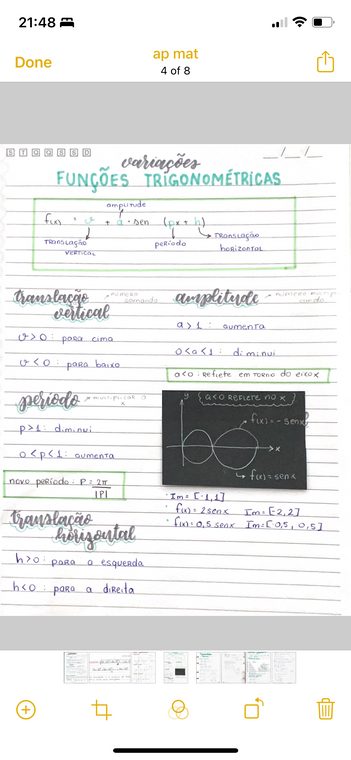 21:48
Done
ap mat
4 of 8
S T Q Q S S D
__/__/__
variações
FUNÇÕES TRIGONOMÉTRICAS
amplitude
f(x) = v + a · sen (px + h)
TRANSLAÇÃO
VERTICAL
período
TRANSLAÇÃO
HORIZONTAL
translação
vertical
número
somando
v>0: para cima
v<0: para baixo
amplitude
número
a>1: aumenta
0<a<1: diminui
a<0: Reflete em torno do eixo x
período
multiplica o
x
p>1: diminui
0<p<1: aumenta
novo período: P = 2π
|P|
y
{a<0 REFLETE NO X}
f(x) = -senx
x
f(x) = senx
Im = [-1,1]
f(x) = 2senx Im = [-2,2]
f(x) = 0,5 senx Im = [-0,5, 0,5]
translação
horizontal
h>0: para a esquerda
h<0: para a direita